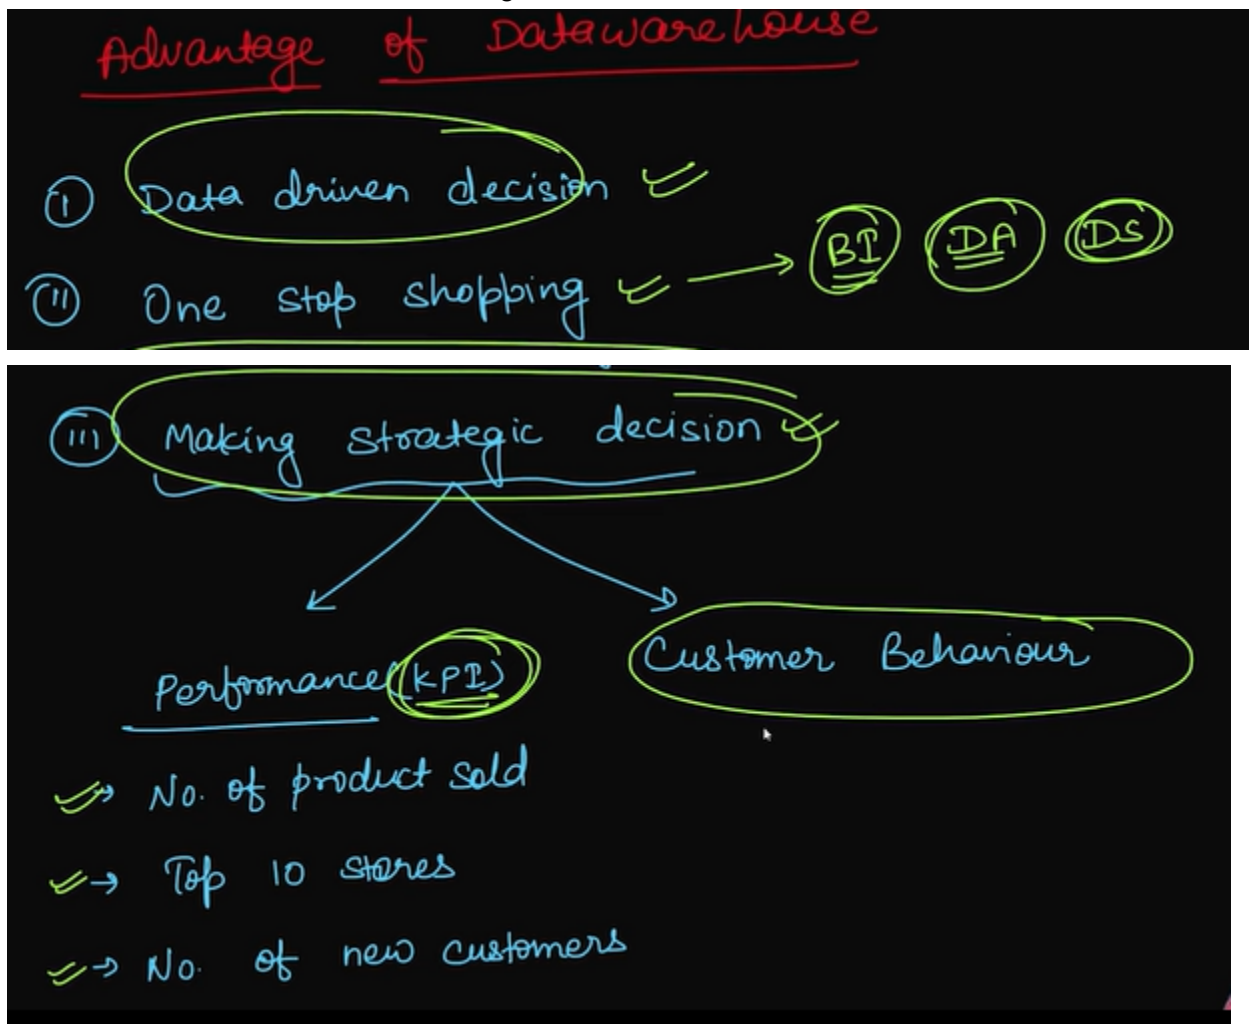 Advantage of Datawarehouse
(I) Data driven decision
(II) One stop shopping → BI DA DS
(III) Making strategic decision
Performance (KPI)
Customer Behaviour
→ No. of product sold
→ Top 10 stores
→ No. of new customers